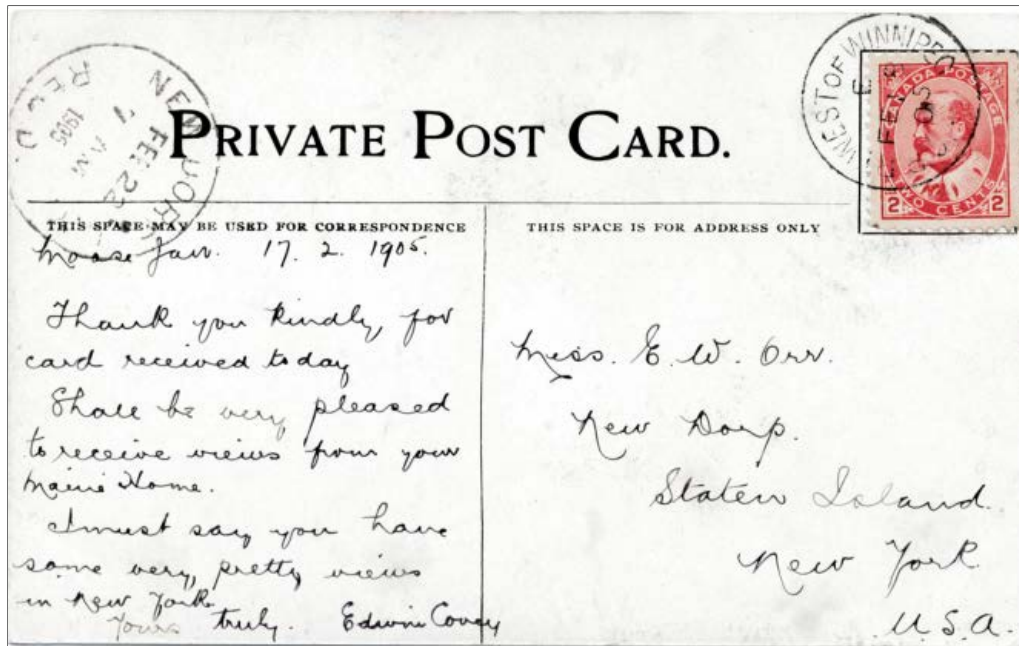 PRIVATE POST CARD.
NEW YORK
FEB 22
7 AM
1905
REC'D
WEST OF WINNIPEG
E
FEB
05
CANADA POSTAGE
TWO CENTS
2 2
THIS SPACE MAY BE USED FOR CORRESPONDENCE
Moose Jaw. 17. 2. 1905.
Thank you kindly, for
card received today
Shall be very pleased
to receive views from your
Maine Home.
I must say you have
some very, pretty views
in New York
Yours truly. Edwin Covey
THIS SPACE IS FOR ADDRESS ONLY
Miss. E. W. Orr.
New Dorp.
Staten Island.
New York
U.S.A.